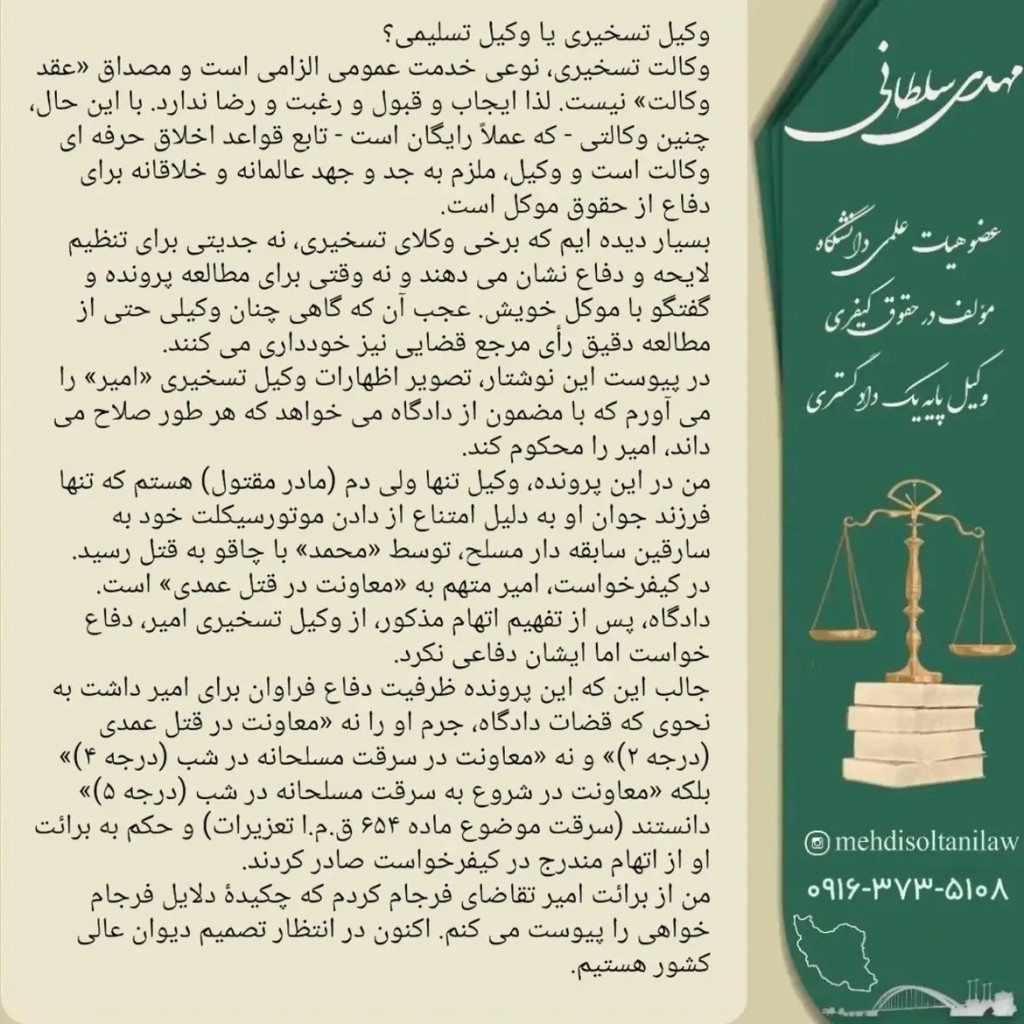 وکیل تسخیری یا وکیل تسلیمی؟
وکالت تسخیری، نوعی خدمت عمومی الزامی است و مصداق «عقد
وکالت» نیست. لذا ایجاب و قبول و رغبت و رضا ندارد. با این حال،
چنین وکالتی - که عملاً رایگان است - تابع قواعد اخلاق حرفه ای
وکالت است و وکیل، ملزم به جد و جهد عالمانه و خلاقانه برای
دفاع از حقوق موکل است.
بسیار دیده ایم که برخی وکلای تسخیری، نه جدیتی برای تنظیم
لایحه و دفاع نشان می دهند و نه وقتی برای مطالعه پرونده و
گفتگو با موکل خویش. عجب آن که گاهی چنان وکیلی حتی از
مطالعه دقیق رأی مرجع قضایی نیز خودداری می کنند.
در پیوست این نوشتار، تصویر اظهارات وکیل تسخیری «امیر» را
می آورم که با مضمون از دادگاه می خواهد که هر طور صلاح می
داند، امیر را محکوم کند.
من در این پرونده، وکیل تنها ولی دم (مادر مقتول) هستم که تنها
فرزند جوان او به دلیل امتناع از دادن موتورسیکلت خود به
سارقین سابقه دار مسلح، توسط «محمد» با چاقو به قتل رسید.
در کیفرخواست، امیر متهم به «معاونت در قتل عمدی» است.
دادگاه، پس از تفهیم اتهام مذکور، از وکیل تسخیری امیر، دفاع
خواست اما ایشان دفاعی نکرد.
جالب این که این پرونده ظرفیت دفاع فراوان برای امیر داشت به
نحوی که قضات دادگاه، جرم او را نه «معاونت در قتل عمدی
(درجه ۲)» و نه «معاونت در سرقت مسلحانه در شب (درجه ۴)»
بلکه «معاونت در شروع به سرقت مسلحانه در شب (درجه ۵)»
دانستند (سرقت موضوع ماده ۶۵۴ ق.م.ا تعزیرات) و حکم به برائت
او از اتهام مندرج در کیفرخواست صادر کردند.
من از برائت امیر تقاضای فرجام کردم که چکیدهٔ دلایل فرجام
خواهی را پیوست می کنم. اکنون در انتظار تصمیم دیوان عالی
کشور هستیم.
مهدی سلطانی
عضو هیات علمی دانشگاه
مؤلف در حقوق کیفری
وکیل پایه یک دادگستری
mehdisoltanilaw
۰۹۱۶-۳۷۳-۵۱۰۸